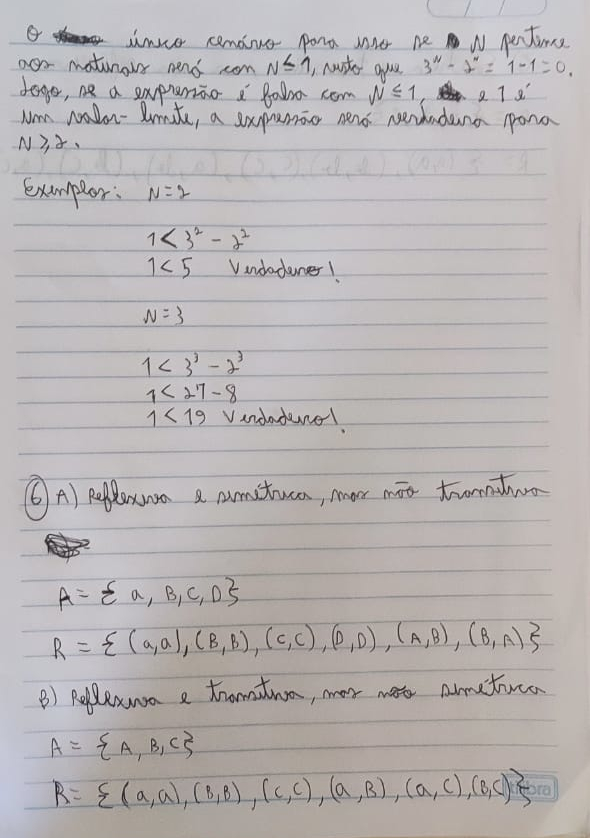 O único cenário para isso se N pertence
aos naturais será con N ≤ 1, visto que 3ᴺ - 2ᴺ = 1 - 1 = 0.
Logo, se a expressão é falsa com N ≤ 1, e 1 é
um valor-limite, a expressão será verdadeira para
N ≥ 2.
Exemplos: N = 2
1 < 3² - 2²
1 < 5 Verdadeiro!
N = 3
1 < 3³ - 2³
1 < 27 - 8
1 < 19 Verdadeiro!
6 A) Reflexiva e simétrica, mas não transitiva
A = { a, B, C, D}
R = { (a,a), (B,B), (C,C), (D,D), (A,B), (B,A) }
B) Reflexiva e transitiva, mas não simétrica
A = {A, B, C}
R = { (a,a), (B,B), (C,C), (a,B), (a,C), (B,C) }